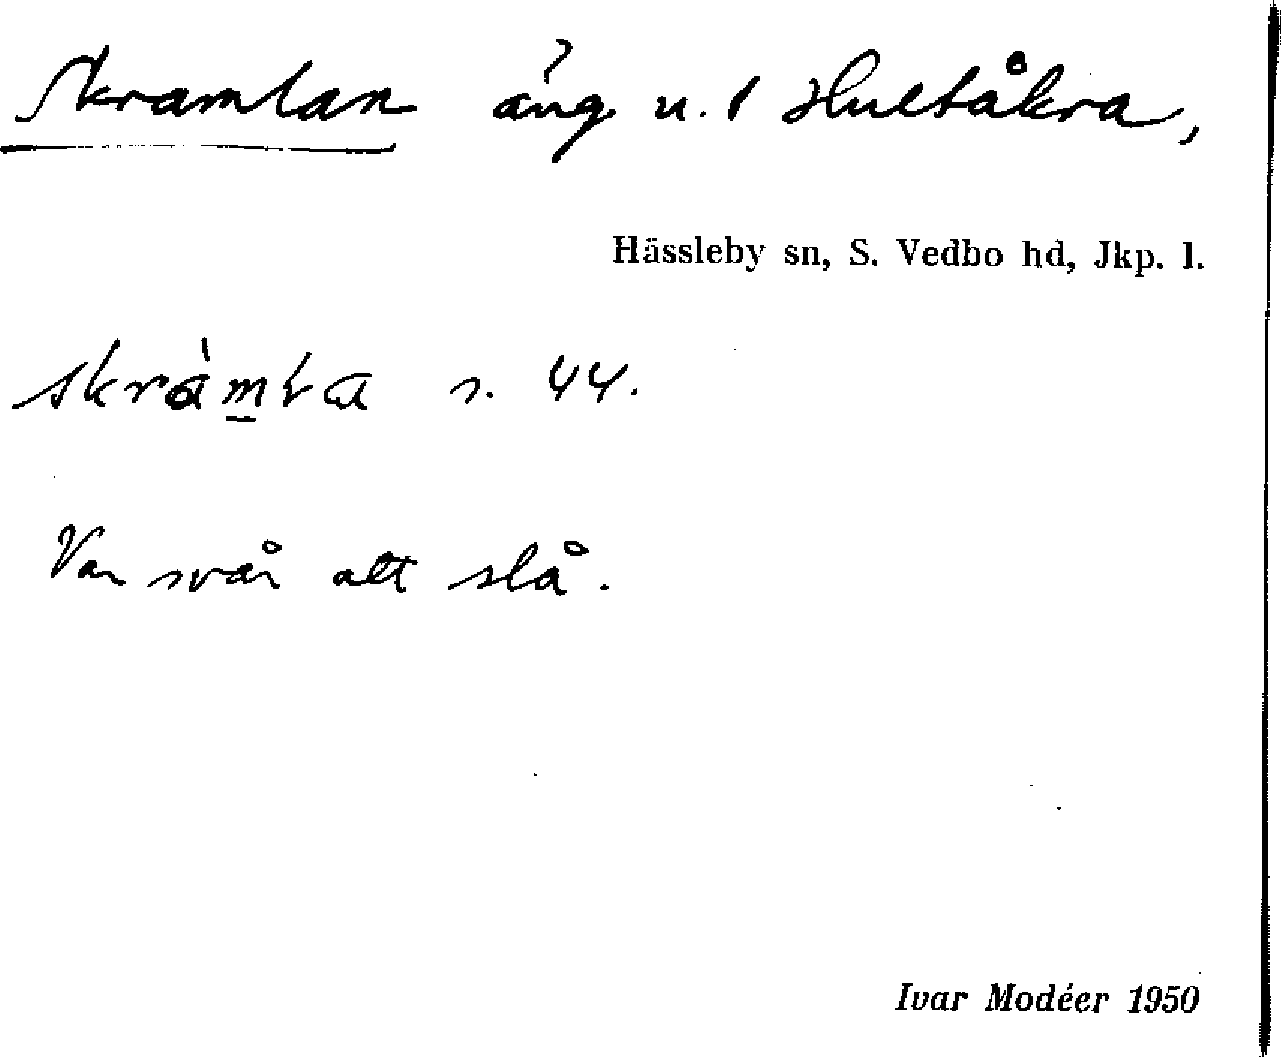 Skramlan äng u. 1 Hultåkra,
Hässleby sn, S. Vedbo hd, Jkp. l.
s. 44.
Var svår att slå.
Ivar Modéer 1950